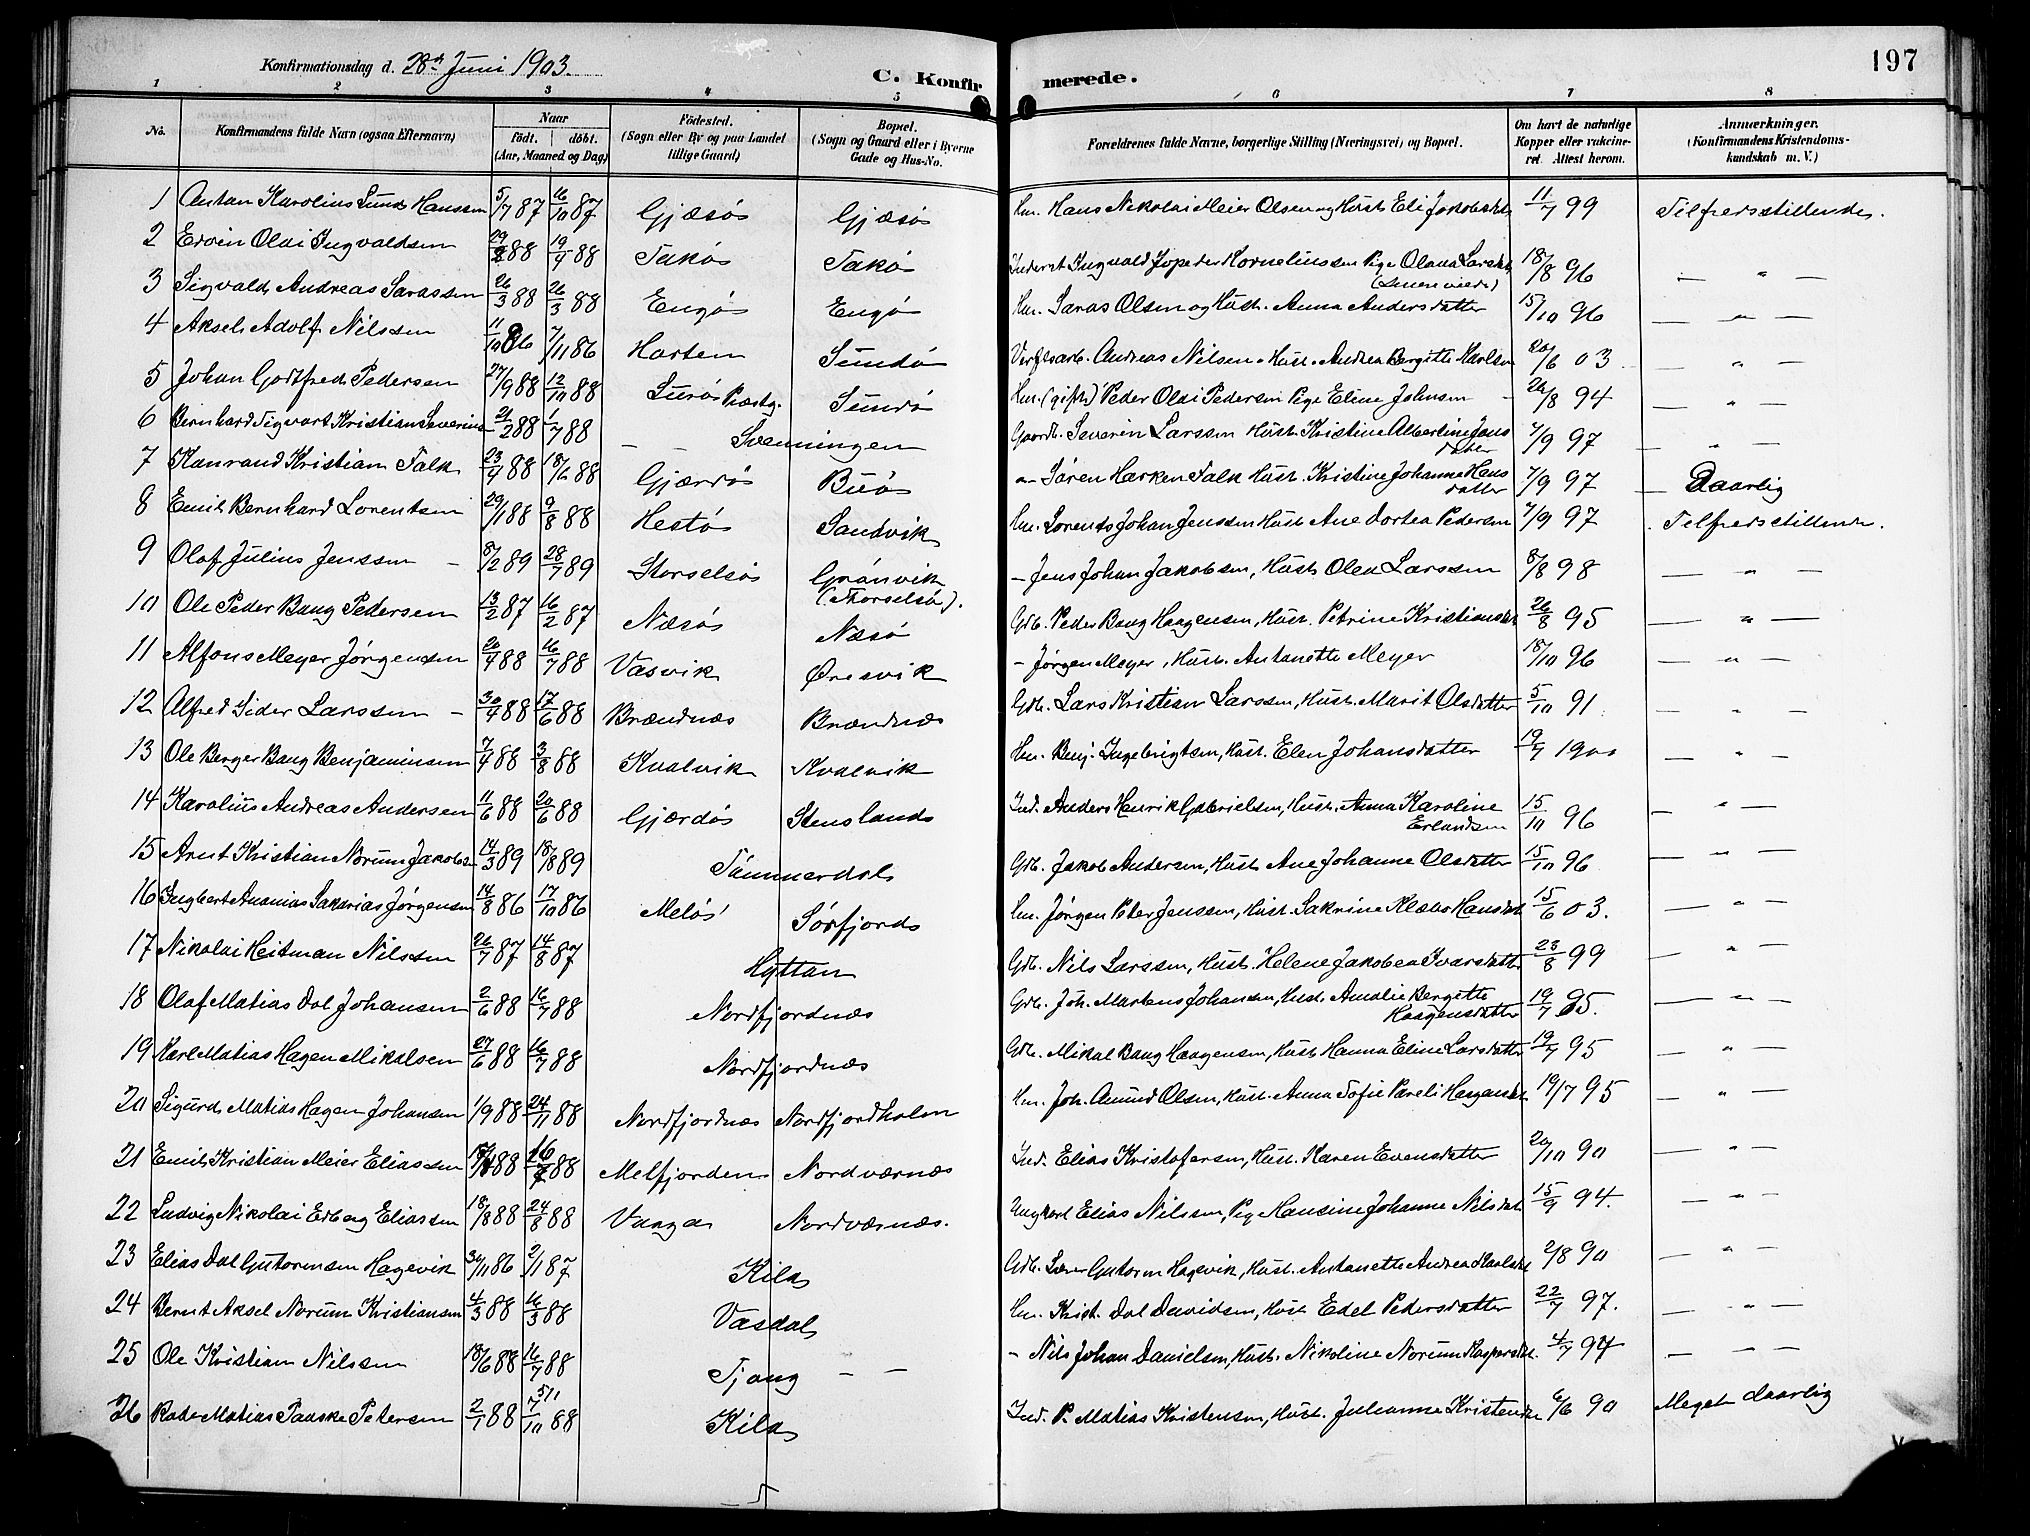 Konfirmationsdag d. 28d Juni 1903.
C. Konfirmerede.
197
1 2 3 4 5 6 7 8
No. Konfirmandens fulde Navn (ogsaa Efternavn) Naar født. døbt. (Aar, Maaned og Dag) Fødested. (Sogn eller By og paa Landet tillige Gaard) Bopæl. (Sogn og Gaard eller i Byerne Gade og Hus-No. Forældrenes fulde Navne, borgerlige Stilling (Næringsvei) og Bopæl. Om havt de naturlige Kopper eller vakcineret. Attest herom. Anmærkninger. (Konfirmandens Kristendomskundskab m. V.)
1 Anton Karolius Lund Hanssen 5/7 87 16/10 87 Gjæsø Gjæsø Hm. Hans Nikolai Meier Olsen og Hust. Eli Jakobsdat 11/7 99 Tilfredsstillende.
2 Ervin Olai Ingvaldsen 29/2 88 19/4 88 Takø Takø Inderst Ingvald Kornelius​sen Pige Olava Larsdat 18/8 96 — " —
3 Sigvald Andreas Sarassen 26/3 88 26/3 88 Engø Engø Hm. Saras Olsen og Hust. Anna Andersdatter 15/10 96 — " —
4 Aksel Adolf Nilssen 11/10 86 7/11 86 Horten Sundø Verftsarb. Andreas Nilsen Hust. Andrea Bergitte Karlsen 20/6 03 — " —
5 Johan Gotfred Pedersen 27/9 88 12/10 88 Lurø Præstg. Sundø Hm. (gift) Peder Olai Pedersen Pige Eline Johnsen 26/8 94 — " —
6 Bernhard Sigvart Kristian Severins 2/2 88 1/7 88 — — Svenningen Gaardb. Severin Larssen Hust. Kristine Albertine Jensdatter 7/9 97 — " —
7 Konrand Kristian Falk 23/4 88 18/6 88 Gjærdø Buø — Søren Harken Falk Hust. Kristine Johanne Hansdatter 7/9 97 — Daarlig
8 Emil Bernhard Lorentsen 29/1 88 9/8 88 Hestø Sandvik Hm. Lorents Johan Jenssen Hust. Ane Dortea Pedersen 7/9 97 Tilfredsstillende.
9 Olaf Julius Jenssen — 8/2 89 28/7 89 Storselsø Grønvik (Storselsø). — Jens Johan Jakobsen, Hust. Olea Larssen 8/8 98 — " —
10 Ole Peder Bang Pedersen 13/2 87 16/2 87 Næsø Næsø Gdb. Peder Bang Haagensen, Hust. Petrine Kristiansdat 26/8 95 — " —
11 Alfons Meyer Jørgensen 20/4 88 16/7 88 Vasvik Øresvik — Jørgen Meyer, Hust. Antonette Meyer 18/10 96 — " —
12 Alfred Sider Larssen — 30/4 88 17/6 88 Brændnæs Brændnæs Gdb. Lars Kristian Larssen, Hust. Marit Olsdatter 5/10 91 — " —
13 Ole Berger Bang Benjaminsen 7/4 88 3/8 88 Kvalvik Kvalvik Hm. Benj. Ingebrigtsen, Hust. Elen Johansdatter 19/7 1900 — " —
14 Karolius Andreas Andersen 11/6 88 20/6 88 Gjærdø Stensland Ind. Anders Henrik Gabrielsen, Hust. Anna Karoline Erlandsen 15/10 96 — " —
15 Arnt Kristian Norum Jakobs 14/3 89 18/8 89 Tømmerdal Gdb. Jakob Andersen, Hust. Ane Johanne Olsdatter 15/10 96 — " —
16 Ingbert Ananias Sakarias Jørgensen 14/8 86 17/10 86 Melø Sørfjord Hm. Jørgen Peter Jenssen, Hust. Sakrine Klæbo Hansdat. 15/6 03. — " —
17 Nikolai Heitman Nilssen 26/7 87 14/8 87 Hyttan Gdb. Nils Larssen, Hust. Helene Jakobea Ivarsdatter 23/8 99 — " —
18 Olaf Matias Dal Johansen 2/6 88 16/7 88 Nordfjordnæs Gdb. Joh. Martens Johansen, Hust. Amalie Bergitte Haagensdatter 19/7 95. — " —
19 Karl Matias Hagen Mikalsen 27/6 88 16/7 88 Nordfjordnæs Gdb. Mikal Bang Haagensen, Hust. Hanna Eline Larsdatter 19/7 95 — " —
20 Sigurd Matias Hagen Johansen 1/9 88 24/11 88 Nordfjordnæs Nordfjordholm Hm. Joh. Amund Olsen, Hust. Anna Sofie Pareli Haagensdat. 19/7 95 — " —
21 Emil Kristian Meier Eliassen 88 88 Melfjorden Nordværnæs Ind. Elias Kristofersen, Hust. Karen Evensdatter 20/10 90 — " —
22 Ludvig Nikolai Edberg Eliassen 18/8 88 24/8 88 Vanga Nordværnæs. Ungkarl Elias Nilssen, Pige Hansine Johanne Nilsdat. 15/9 94. — " —
23 Elias Dal Gutormsen Hagevik 30/11 86 2/1 87 Kila Gdb. Lærer Gutorm Hagevik, Hust. Antonette Andrea Karlsdat 2/8 90 — " —
24 Bernt Aksel Norum Kristiansen 4/3 88 16/3 88 Vasdal Hm. Krist. Dal Davidsen, Hust. Edel Pedersdatter 22/7 97. — " —
25 Ole Kristian Nilssen 18/6 88 16/7 88 Tjong — — — Nils Johan Danielsen, Hust. Nikoline Norum Kaspersdat. 4/7 94 — " —
26 Rade Matias Paaske Petersen 2/1 88 7/10 88 Kila Ind. P. Matias Kristensen, Hust. Julianne Kristendat 6/6 90 Meget daarlig